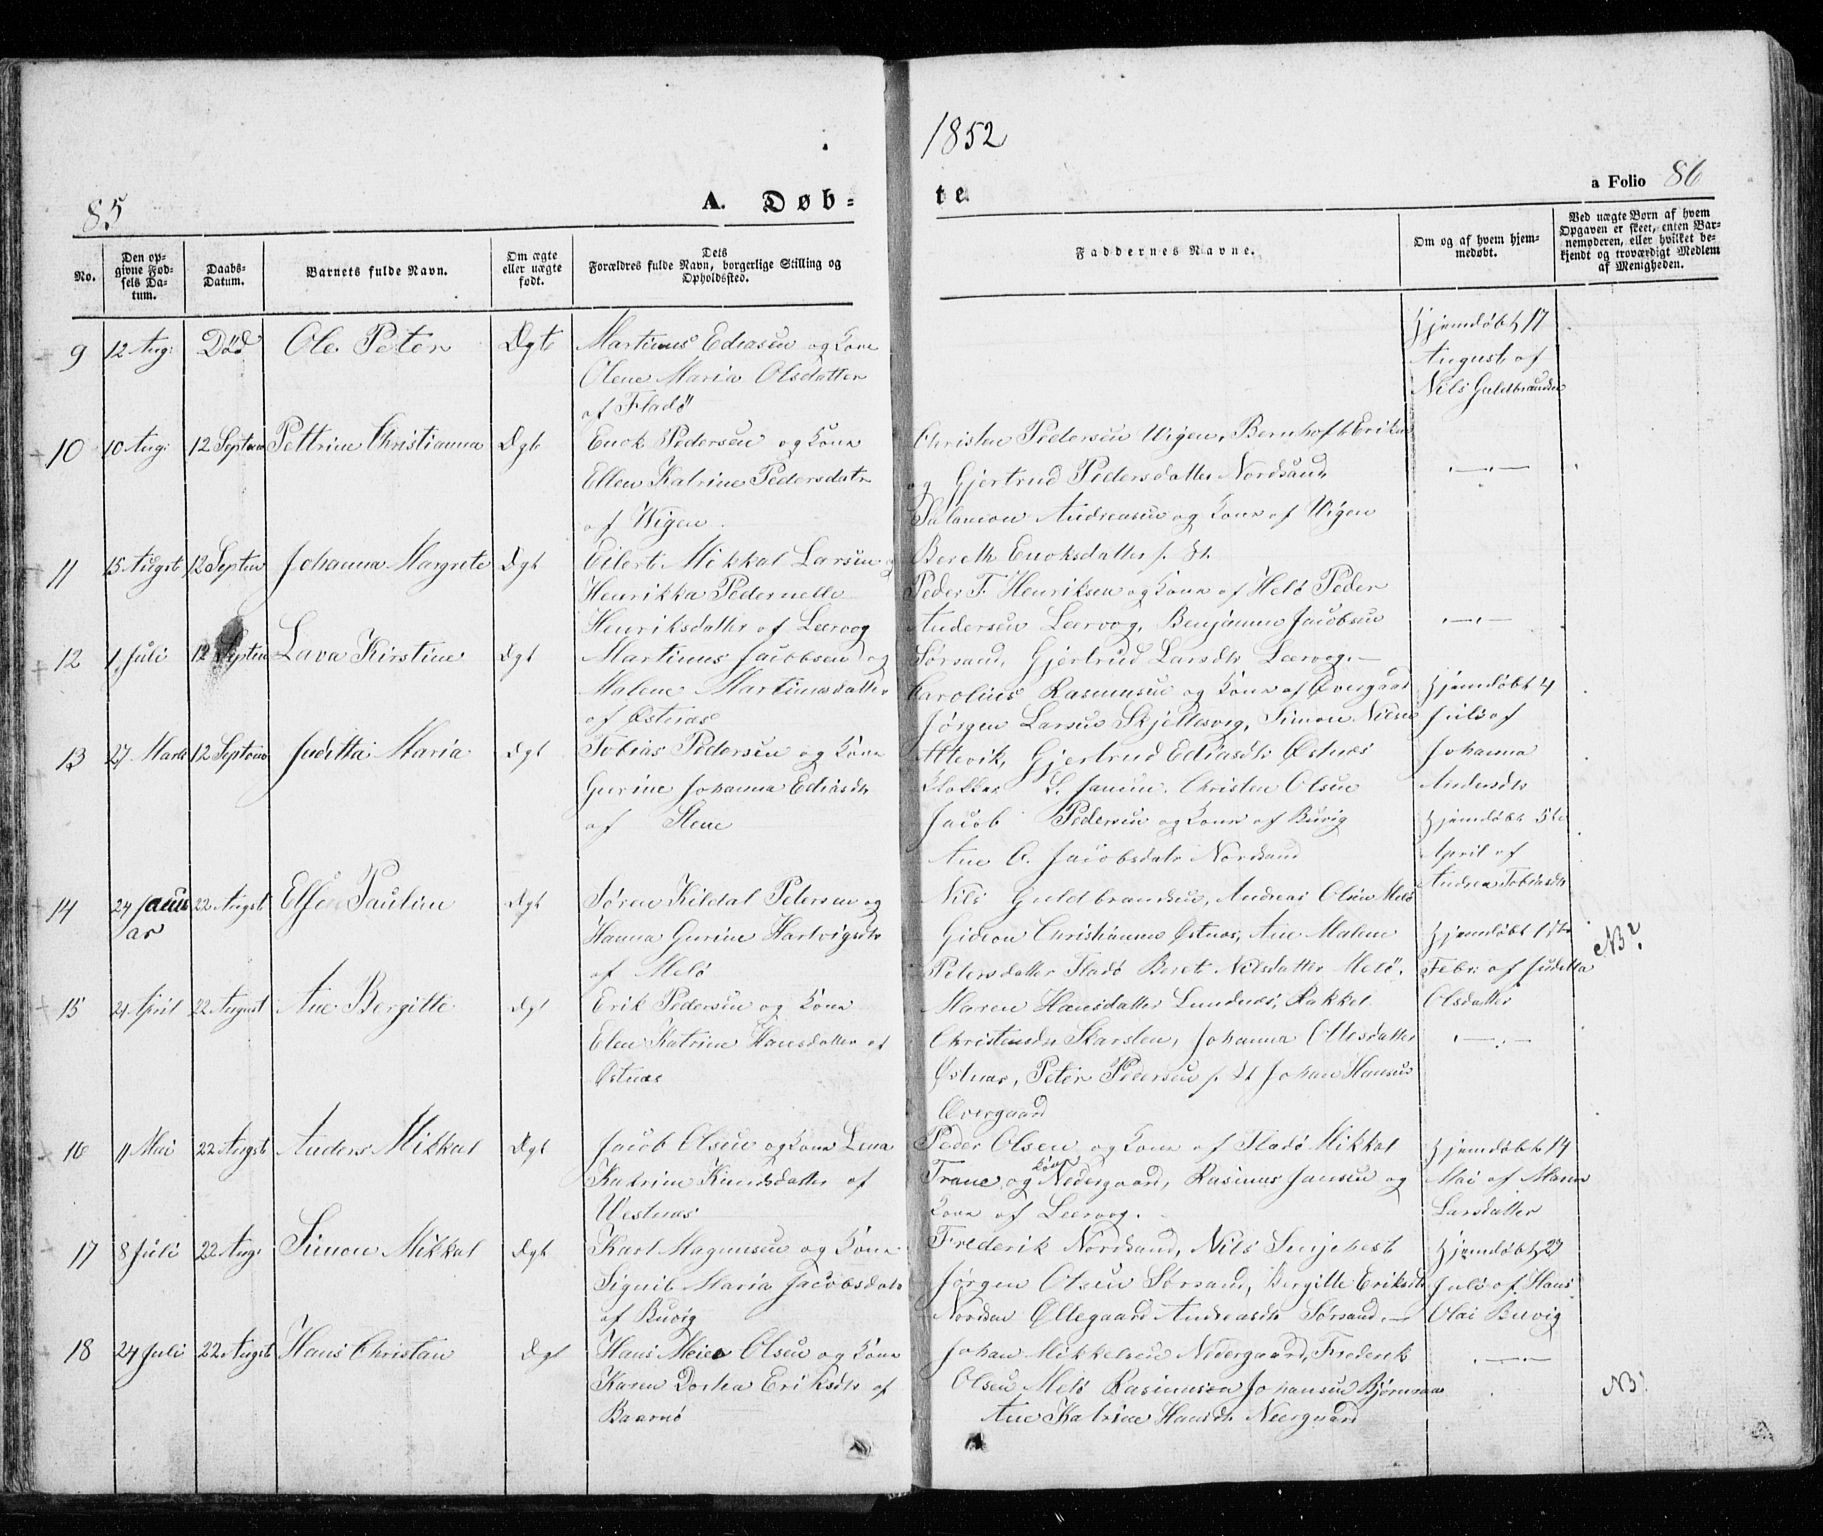 1852
85
A. Døb-
te
a Folio 86
No.
Den op-
givne Fød-
sels Da-
tum.
Daabs-
Datum.
Barnets fulde Navn.
Om ægte
eller uægte
født.
Dets
Forældres fulde Navn, borgerlige Stilling og
Opholdssted.
Faddernes Navne.
Om og af hvem hjem-
medøbt.
Ved uægte Børn af hvem
Opgaven er skeet, enten Bar-
nemoderen, eller hvilket be-
kjendt og troværdigt Medlem
af Menigheden.
9 12 Aug: Død Ole Peter Ægte Martinus Ediasen og Kone
Olene Maria Olsdatter
af Fladö
Hjemdøbt 17
August af
Nils Guldbrandsen
10 10 Aug: 12 Septem Pettrine Christianna Ægte Enok Pedersen og Kone
Ellen Katrine Pedersdatr
af Wigen
Christen Pedersen Wigen, Bernhoft Eriksen
og Gjertrud Pedersdatter Nordsand
Salamon Andreasen og Kone af Wigen
Bereth Enoksdatter s. St.
11 15 Augst 12 Septem Johanna Margrete Ægt Eilert Mikkal Larsen og
Henrikka Pedernelle
Henriksdatter af Leervog
Peder F. Henriksen og Kone af Helö Peder
Andersen Leervog, Benjamin Jacobsen
Sørsand, Gjertrud Larsdtr Leervog.
12 1 Juli 12 Septem Lava Kirstine Ægt Martinus Jacobsen og
Malene Martinusdatter
af Østnæs
Karolius Rasmusen og Kone af Overgaard
Jørgen Larsen Skjellesvig, Simon Nilsen
Altevik, Gjertrud Ediasdtr Østnæs
Hjemdøbt 4
Juli af
Johanna
Andersdtr
13 27 Marts 12 Septem Judetta Maria Ægt Tobias Pedersen og Kone
Gurine Johanna Ediasdtr
af Stene
Klokker L. Jansen. Christen Olsen
Jacob Pedersen og Kone af Buvig
Ane O. Jacobsdatr Nordsand
Hjemdøbt 5te
April af
Andrea Tobiasdtr
14 24 Janu
ar 22 Augst Elsen Pauline Ægt Søren Kildal Petersen og
Hanna Gurine Hartvigsdtr
af Melö
Nils Guldbrandsen, Andreas Olsen Melö
Gideon Christiansen Østnæs, Ane Malene
Petersdatter Fladö Beret Nilsdatter Melö.
Hjemdøbt 17de
Febr: af Judetta
Olsdatter
NB
15 21 April 22 August Ane Bergitte Ægt Erik Pedersen og Kone
Elen Katrine Hansdatter af
Østnæs
Maren Hansdatter Lundnæs, Rakkel
Christensdtr Skarsten, Johanna Ottesdatter
Østnæs, Peter Pedersen s. St Johan Hansen
Overgaard
16 11 Mai 22 Augst Anders Mikkal Ægt Jacob Olsen og Kone Lena
Katrine Knudsdatter af
Westnæs
Peder Olsen og Kone af Fladö Mikkal
Trane og Kone Nedergaard, Rasmus Jansen og
Kone af Leervog.
Hjemdøbt 14
Mai af Maren
Larsdatter
17 8 Juli 22 Aug: Simon Mikkal Ægt Karl Magnusen og Kone
Signil Maria Jacobsdatr
af Buvig
Frederik Nordsand, Nils Smjehest
Jørgen Olsen Sørsand, Bergitte Eriksdtr
Nordsan Øllegaard Andreasdtr Sørsand
Hjemdøbt 27
Juli af Hans
Olai Buvig
18 24 Juli 22 Augst Hans Christan Ægt Hans Meier Olsen og Kone
Karen Dorthea Eriksdtr af
Baarnö
Johan Mikkelsen Nedergaard, Frederik
Olsen Melö Rasmusen Johansen Bjørnnæs
Ane Katrine Hansdtr Neergaard
NB.